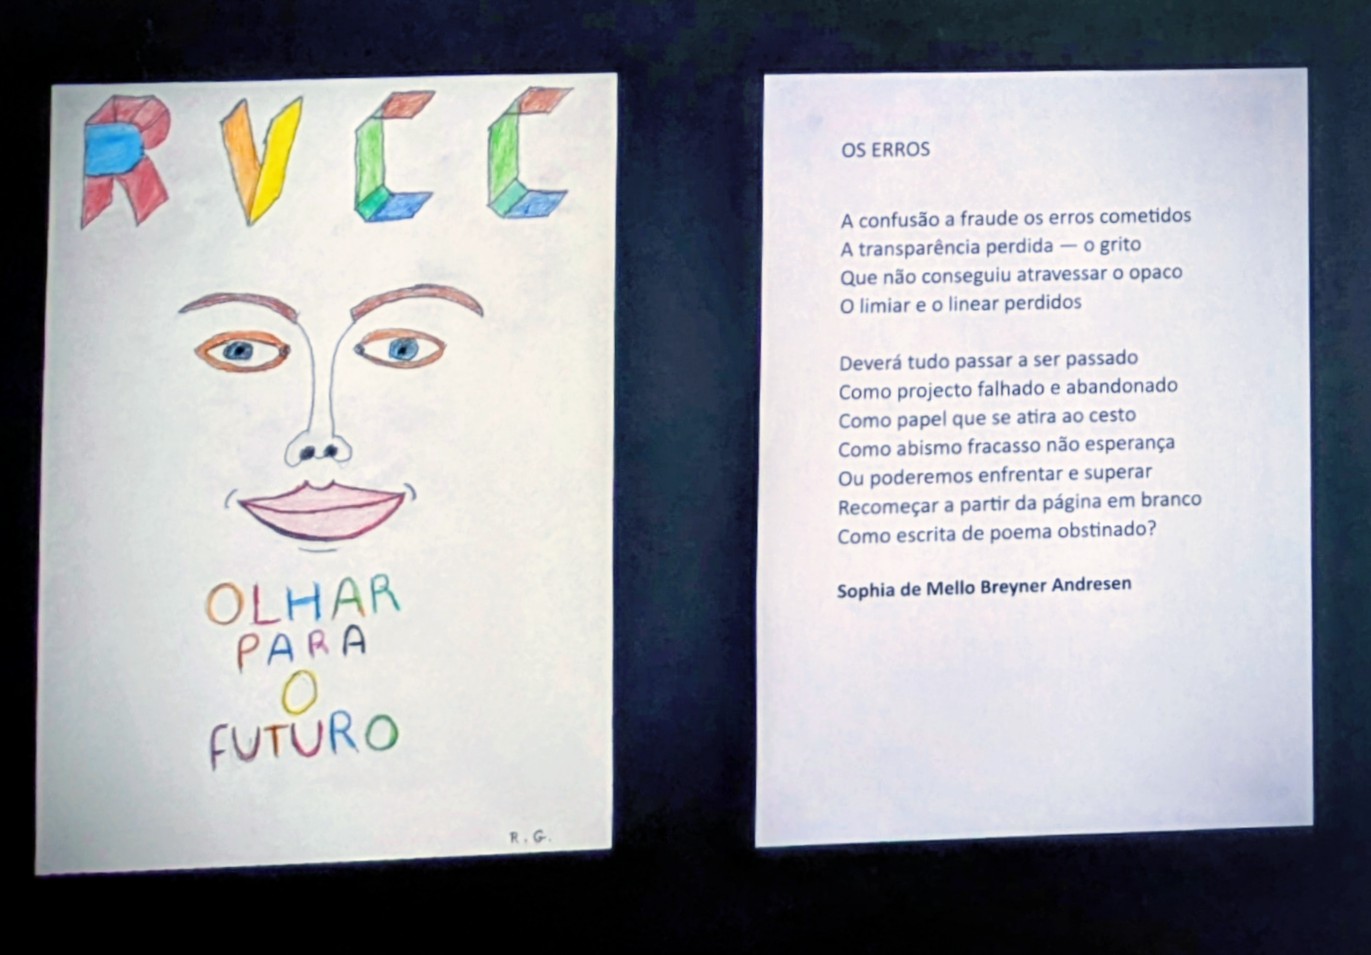 RVCC
OLHAR
PARA
O
FUTURO
R.G.
OS ERROS
A confusão a fraude os erros cometidos
A transparência perdida — o grito
Que não conseguiu atravessar o opaco
O limiar e o linear perdidos
Deverá tudo passar a ser passado
Como projecto falhado e abandonado
Como papel que se atira ao cesto
Como abismo fracasso não esperança
Ou poderemos enfrentar e superar
Recomeçar a partir da página em branco
Como escrita de poema obstinado?
Sophia de Mello Breyner Andresen